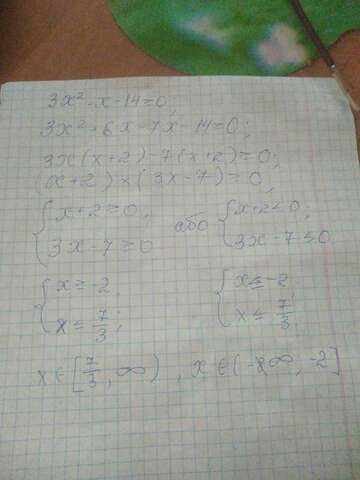 3x² - x - 14 = 0;
3x² + 6x - 7x - 14 = 0;
3x(x+2) - 7(x+2) = 0;
(x+2) × (3x-7) = 0;
{ x+2 ≥ 0, або { x+2 ≤ 0;
{ 3x-7 ≥ 0 { 3x-7 ≤ 0
{ x ≥ -2, { x ≤ -2
{ x ≤ 7/3; { x ≤ 7/3;
x ∈ [7/3, ∞), x ∈ (-∞, -2]